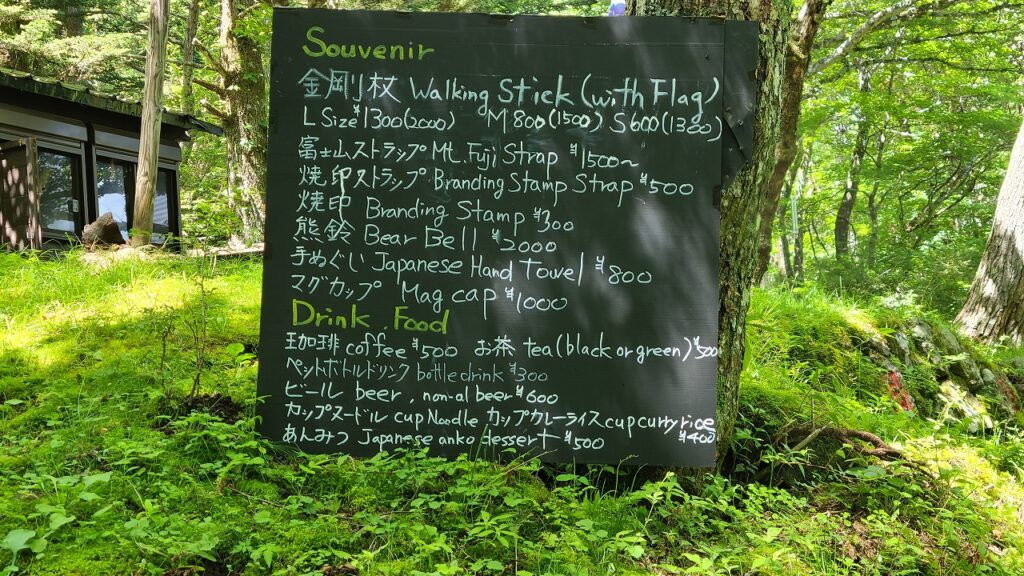 Souvenir
金剛杖 Walking Stick (with Flag)
L Size ¥1300(2000) M 800(1500) S 600(1300)
富士山ストラップ Mt. Fuji Strap ¥1500~
焼印ストラップ Branding Stamp Strap ¥500
焼印 Branding Stamp ¥300
熊鈴 Bear Bell ¥2000
手ぬぐい Japanese Hand Towel ¥800
マグカップ Mag cap ¥1000
Drink. Food
珈琲 coffee ¥500 お茶 tea (black or green) ¥500
ペットボトルドリンク bottle drink ¥300
ビール beer, non-al beer ¥600
カップヌードル cup Noodle カップカレーライス cup curry rice ¥400
あんみつ Japanese anko dessert ¥500